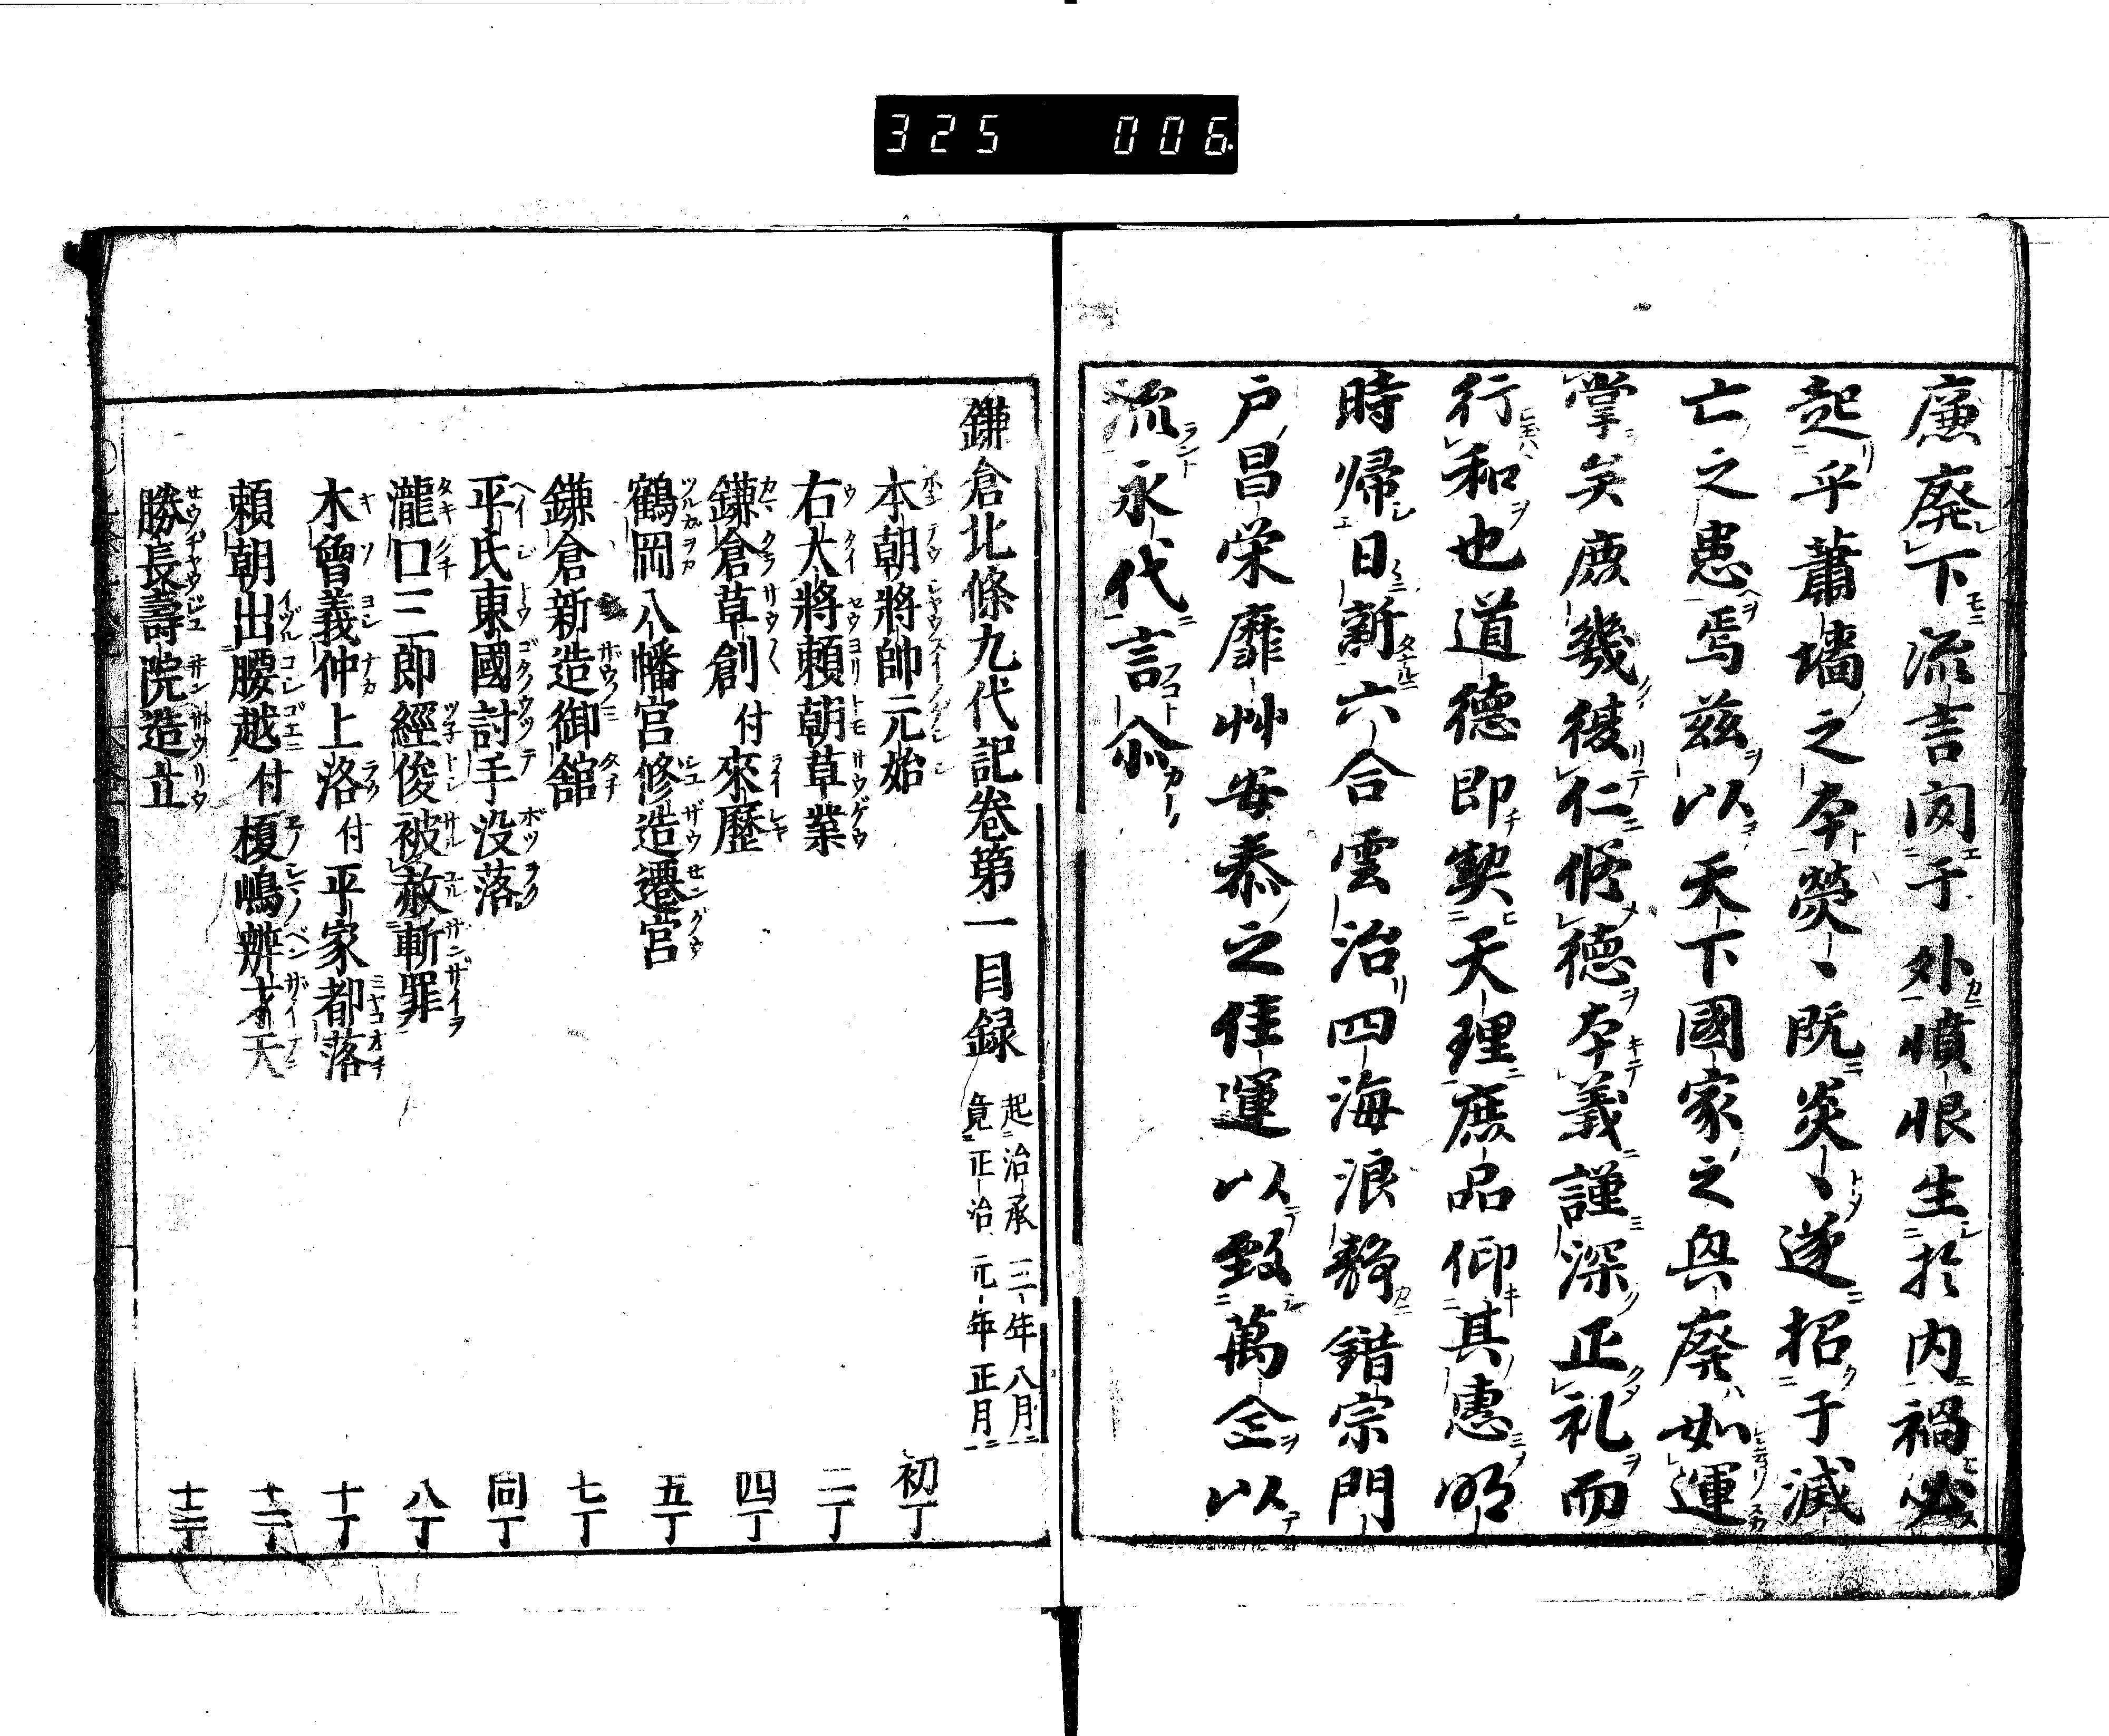 325 006
廉廃下流言闵于外憤恨生於内禍必
起乎蕭墻之本熒〻既炎〻遂招于滅
亡之患焉茲以天下國家之興廃如運
掌矣庶幾後仁修德本義謹深正礼而
行和也道德即契天理庶品仰其惠明
時帰日新六合雲治四海浪静錯宗門
戸昌栄靡艸安泰之佳運以致萬全以
流永代言尒
鎌倉北條九代記巻第一目録 起治承三年八月 竟正治元年正月
本朝將帥元始 初丁
右大將頼朝草業 二丁
鎌倉草創付來歷 四丁
鶴岡八幡宮修造遷宮 五丁
鎌倉新造御舘 七丁
平氏東國討手没落 同丁
瀧口三郎經俊被赦斬罪 八丁
木曾義仲上洛付平家都落 十丁
頼朝出腰越付榎嶋辨才天 十二丁
勝長壽院造立 十三丁